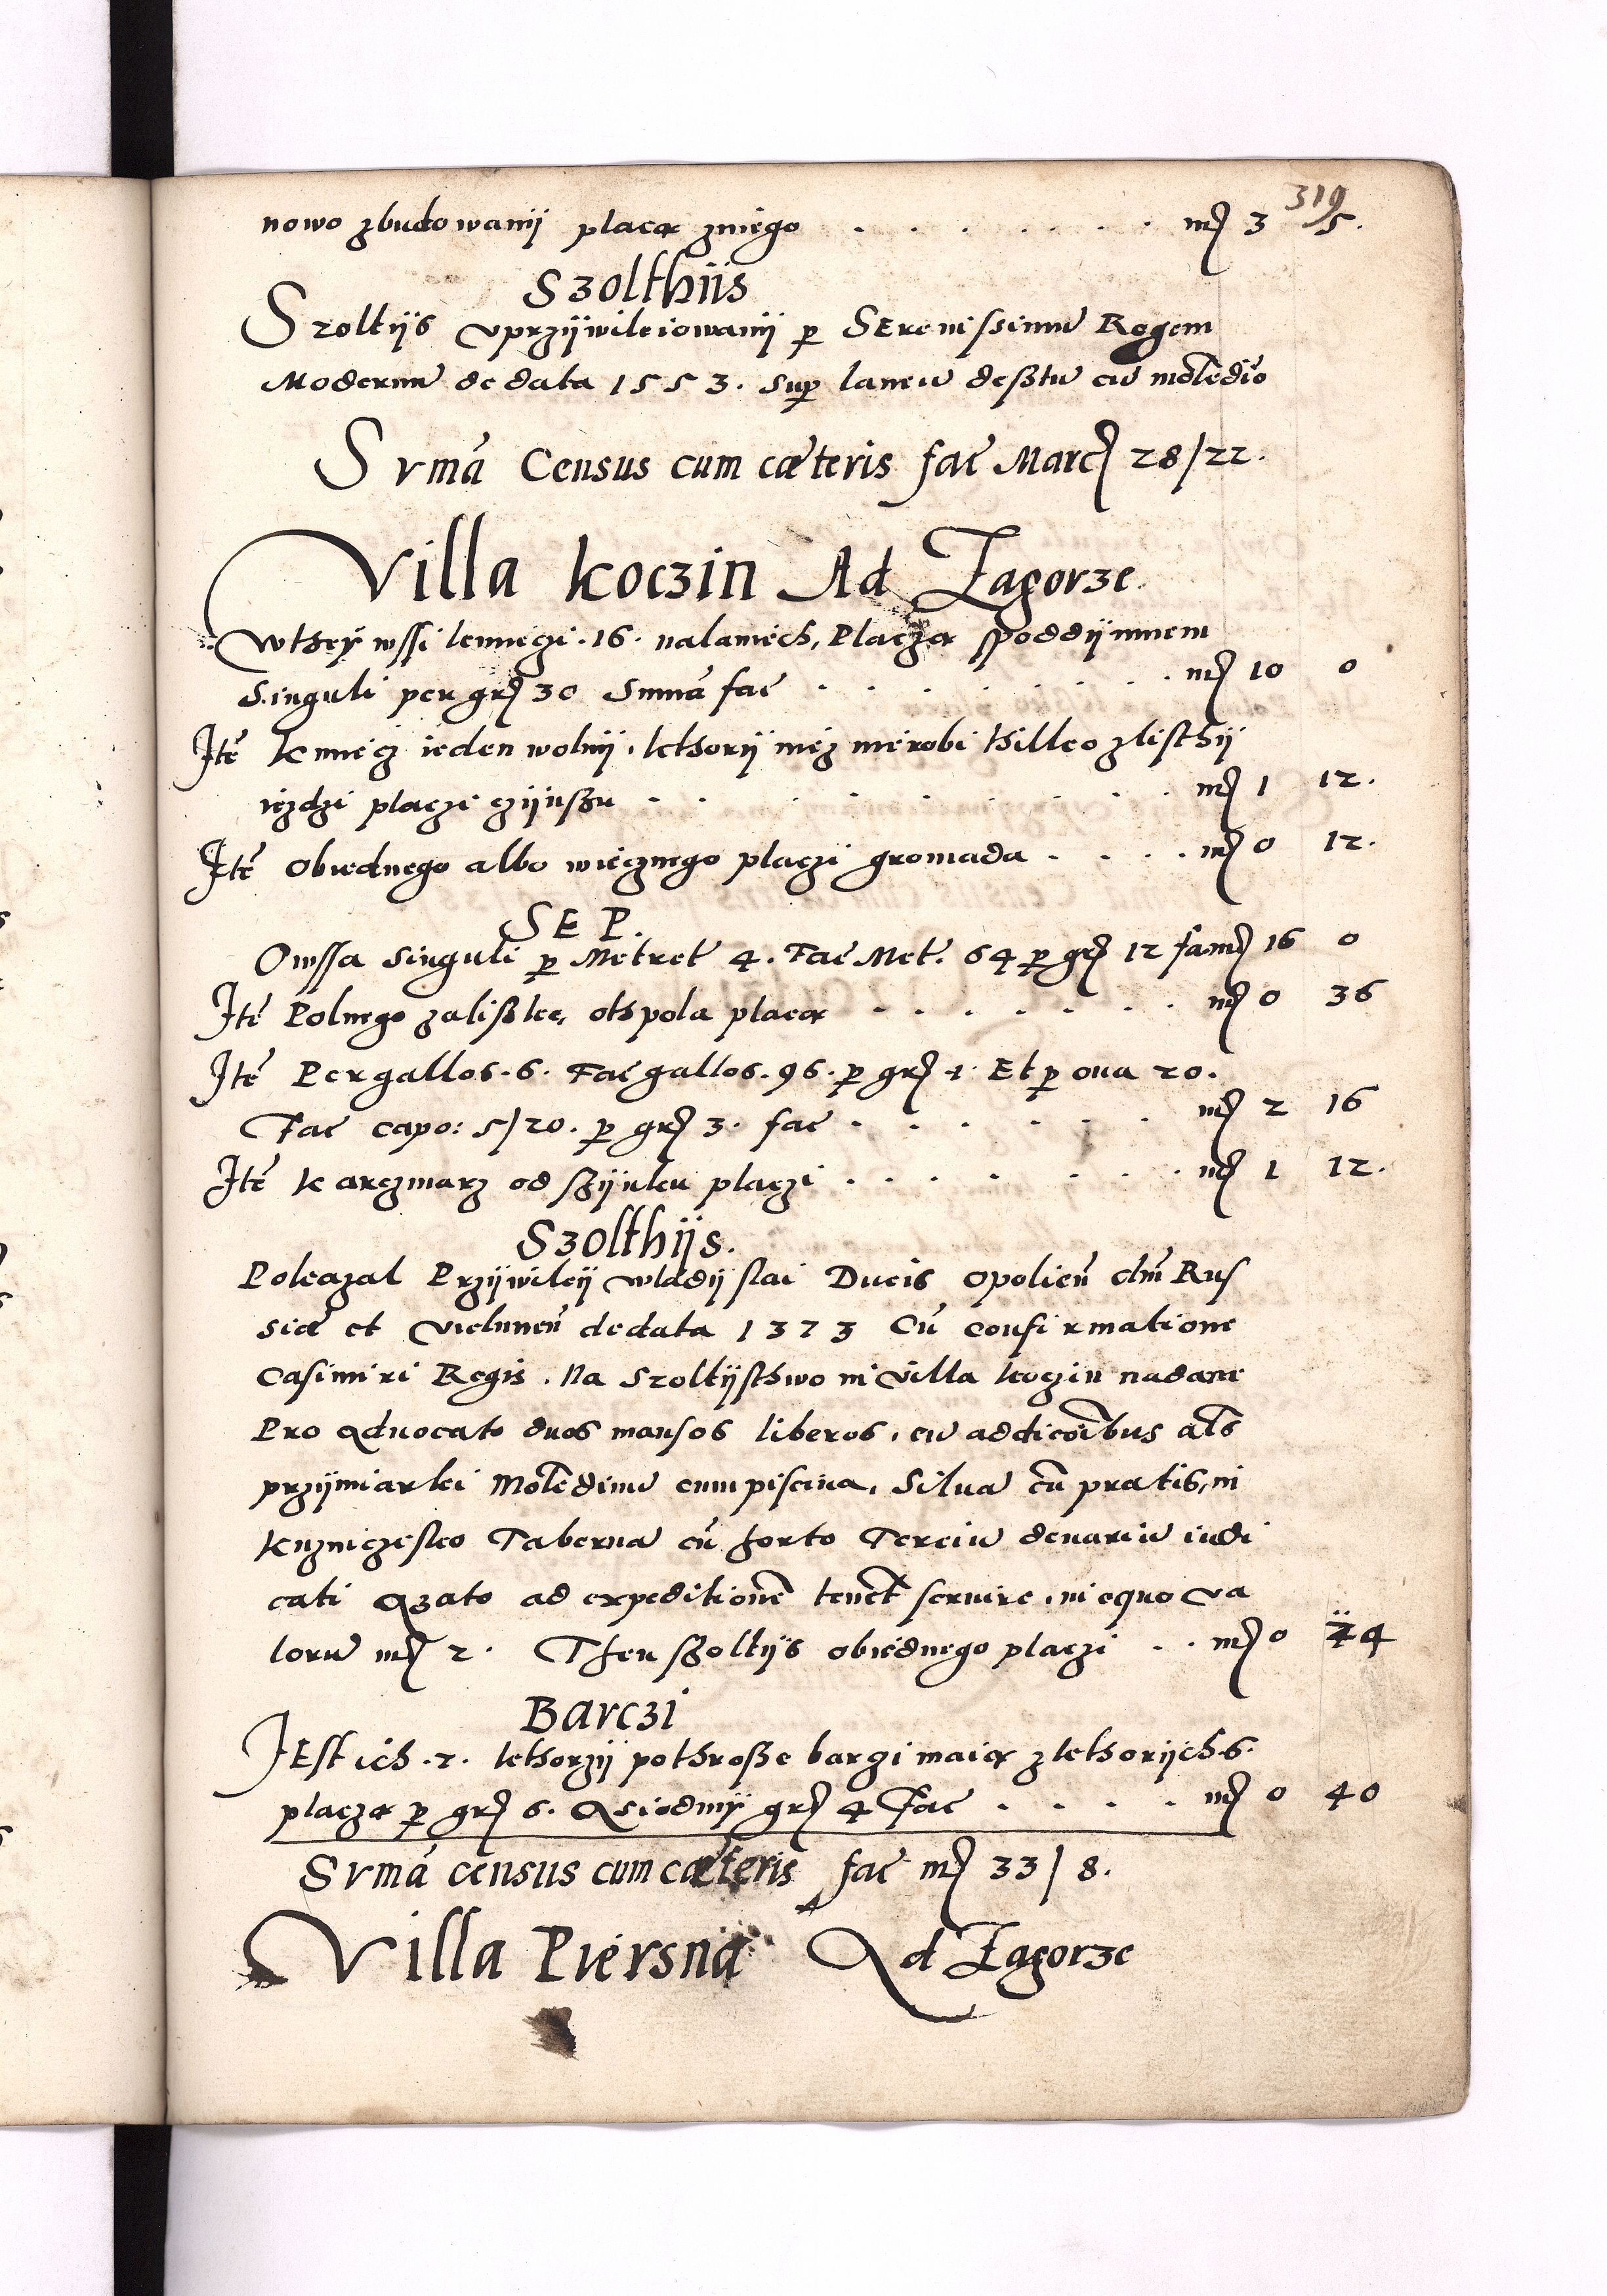 319
nowo zbudowanij placą zniego . . . . . . . mρ 3 5.
Szolthijs
Szoltijs vprzijwileiowanij p Serenissimū Regem
Modernū de data 1553. Sup laneū desßtū cū molēdio
Svmā Census cum cæteris fac Marcρ 28/22.
Villa koczin Ad Zagorze
Wthey wssi kmieczi .16. nalaniech, Placzą spoddijmnem
Singuli per grρ 30 Summā fac . . . . . . . mρ 10 0
Itē kmiecz ieden wolnij, kthorij niez nierobi thilko zlisthij
iezdzi placzi czijnßu . . . . . . . . mρ 1 12.
Itē Obiednego albo wiecznego placzi gromada . . . . mρ 0 12.
SEP.
Owssa singuli p Metret 4. Fac Met. 64 p grρ 12 fa mρ 16 0
Itē Polnego zalißke, othpola placą . . . . . . mρ 0 36
Itē Per gallos .6. Fac gallos .96. p grρ 1. Et p oua 20.
Fac capo: 5/20. p grρ 3. fac . . . . . . mρ 2 16
Itē karczmarz od ßijnku placzi . . . . . . mρ 1 12.
Szolthijs.
Pokazal Przijwileij wladijslai Ducis Opolieñ dm̄ Rus
siæ et Vieluneñ de data 1373 Cū confirmatione
Casimiri Regis. Na Szoltijsthwo in villa koczin nadane
Pro Aduocato duos mansos liberos, cū addicoībus als
przijmiarki Molēdinū cum piscina, Silua cū pratis, in
kuzniczesko Taberna cū horto Terciū denariū iudi
cati Azato ad expeditionē tenet seruire, in equo va
lorū mρ 2. Then ßoltijs obiednego placzi . . mρ 0 24
Barczi
Jest ich .2. kthorzij pothroßе barzi maią zkthorijch .6.
placzą p grρ 6. A siodmy grρ 4 Fac . . . . mρ 0 40
Svmā census cum cæteris fac mρ 33/8.
Villa Piersna Ad Zagorze